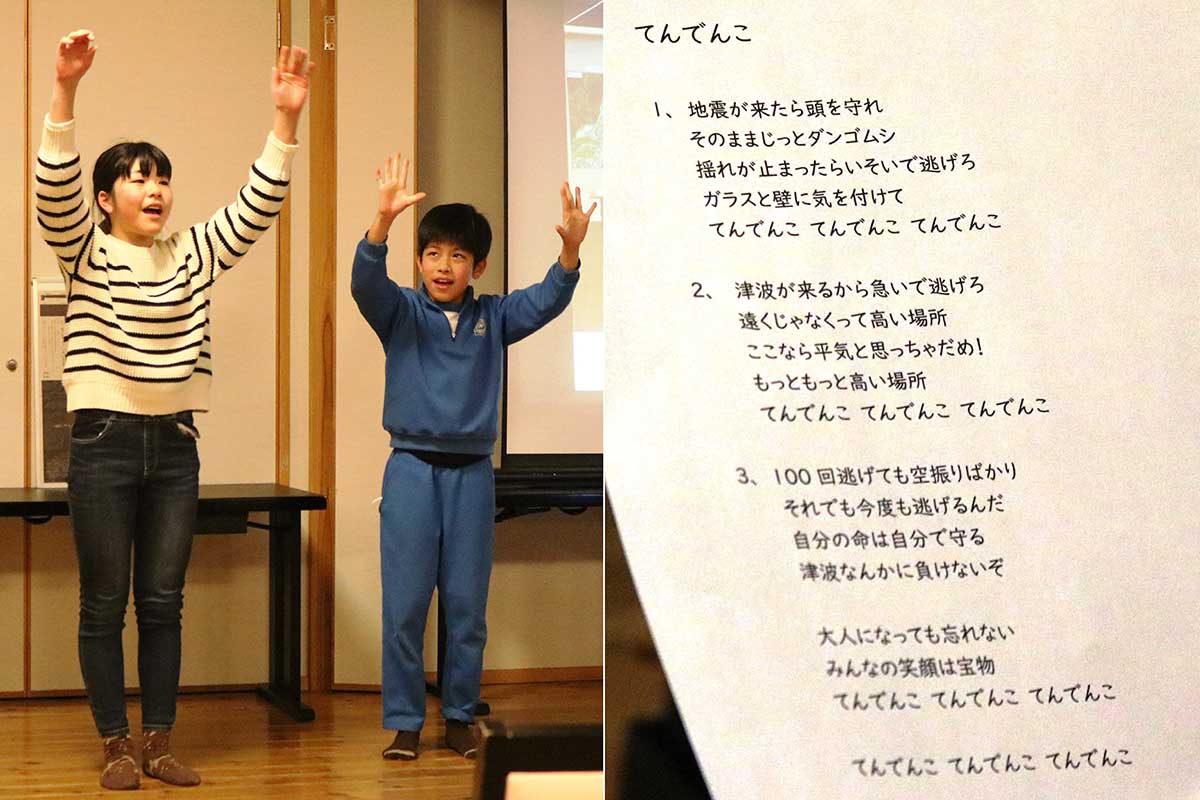 てんでんこ
1、地震が来たら頭を守れ
そのままじっとダンゴムシ
揺れが止まったらいそいで逃げろ
ガラスと壁に気を付けて
てんでんこ てんでんこ てんでんこ
2、 津波が来るから急いで逃げろ
遠くじゃなくって高い場所
ここなら平気と思っちゃだめ!
もっともっと高い場所
てんでんこ てんでんこ てんでんこ
3、100回逃げても空振りばかり
それでも今度も逃げるんだ
自分の命は自分で守る
津波なんかに負けないぞ
大人になっても忘れない
みんなの笑顔は宝物
てんでんこ てんでんこ てんでんこ
てんでんこ てんでんこ てんでんこ